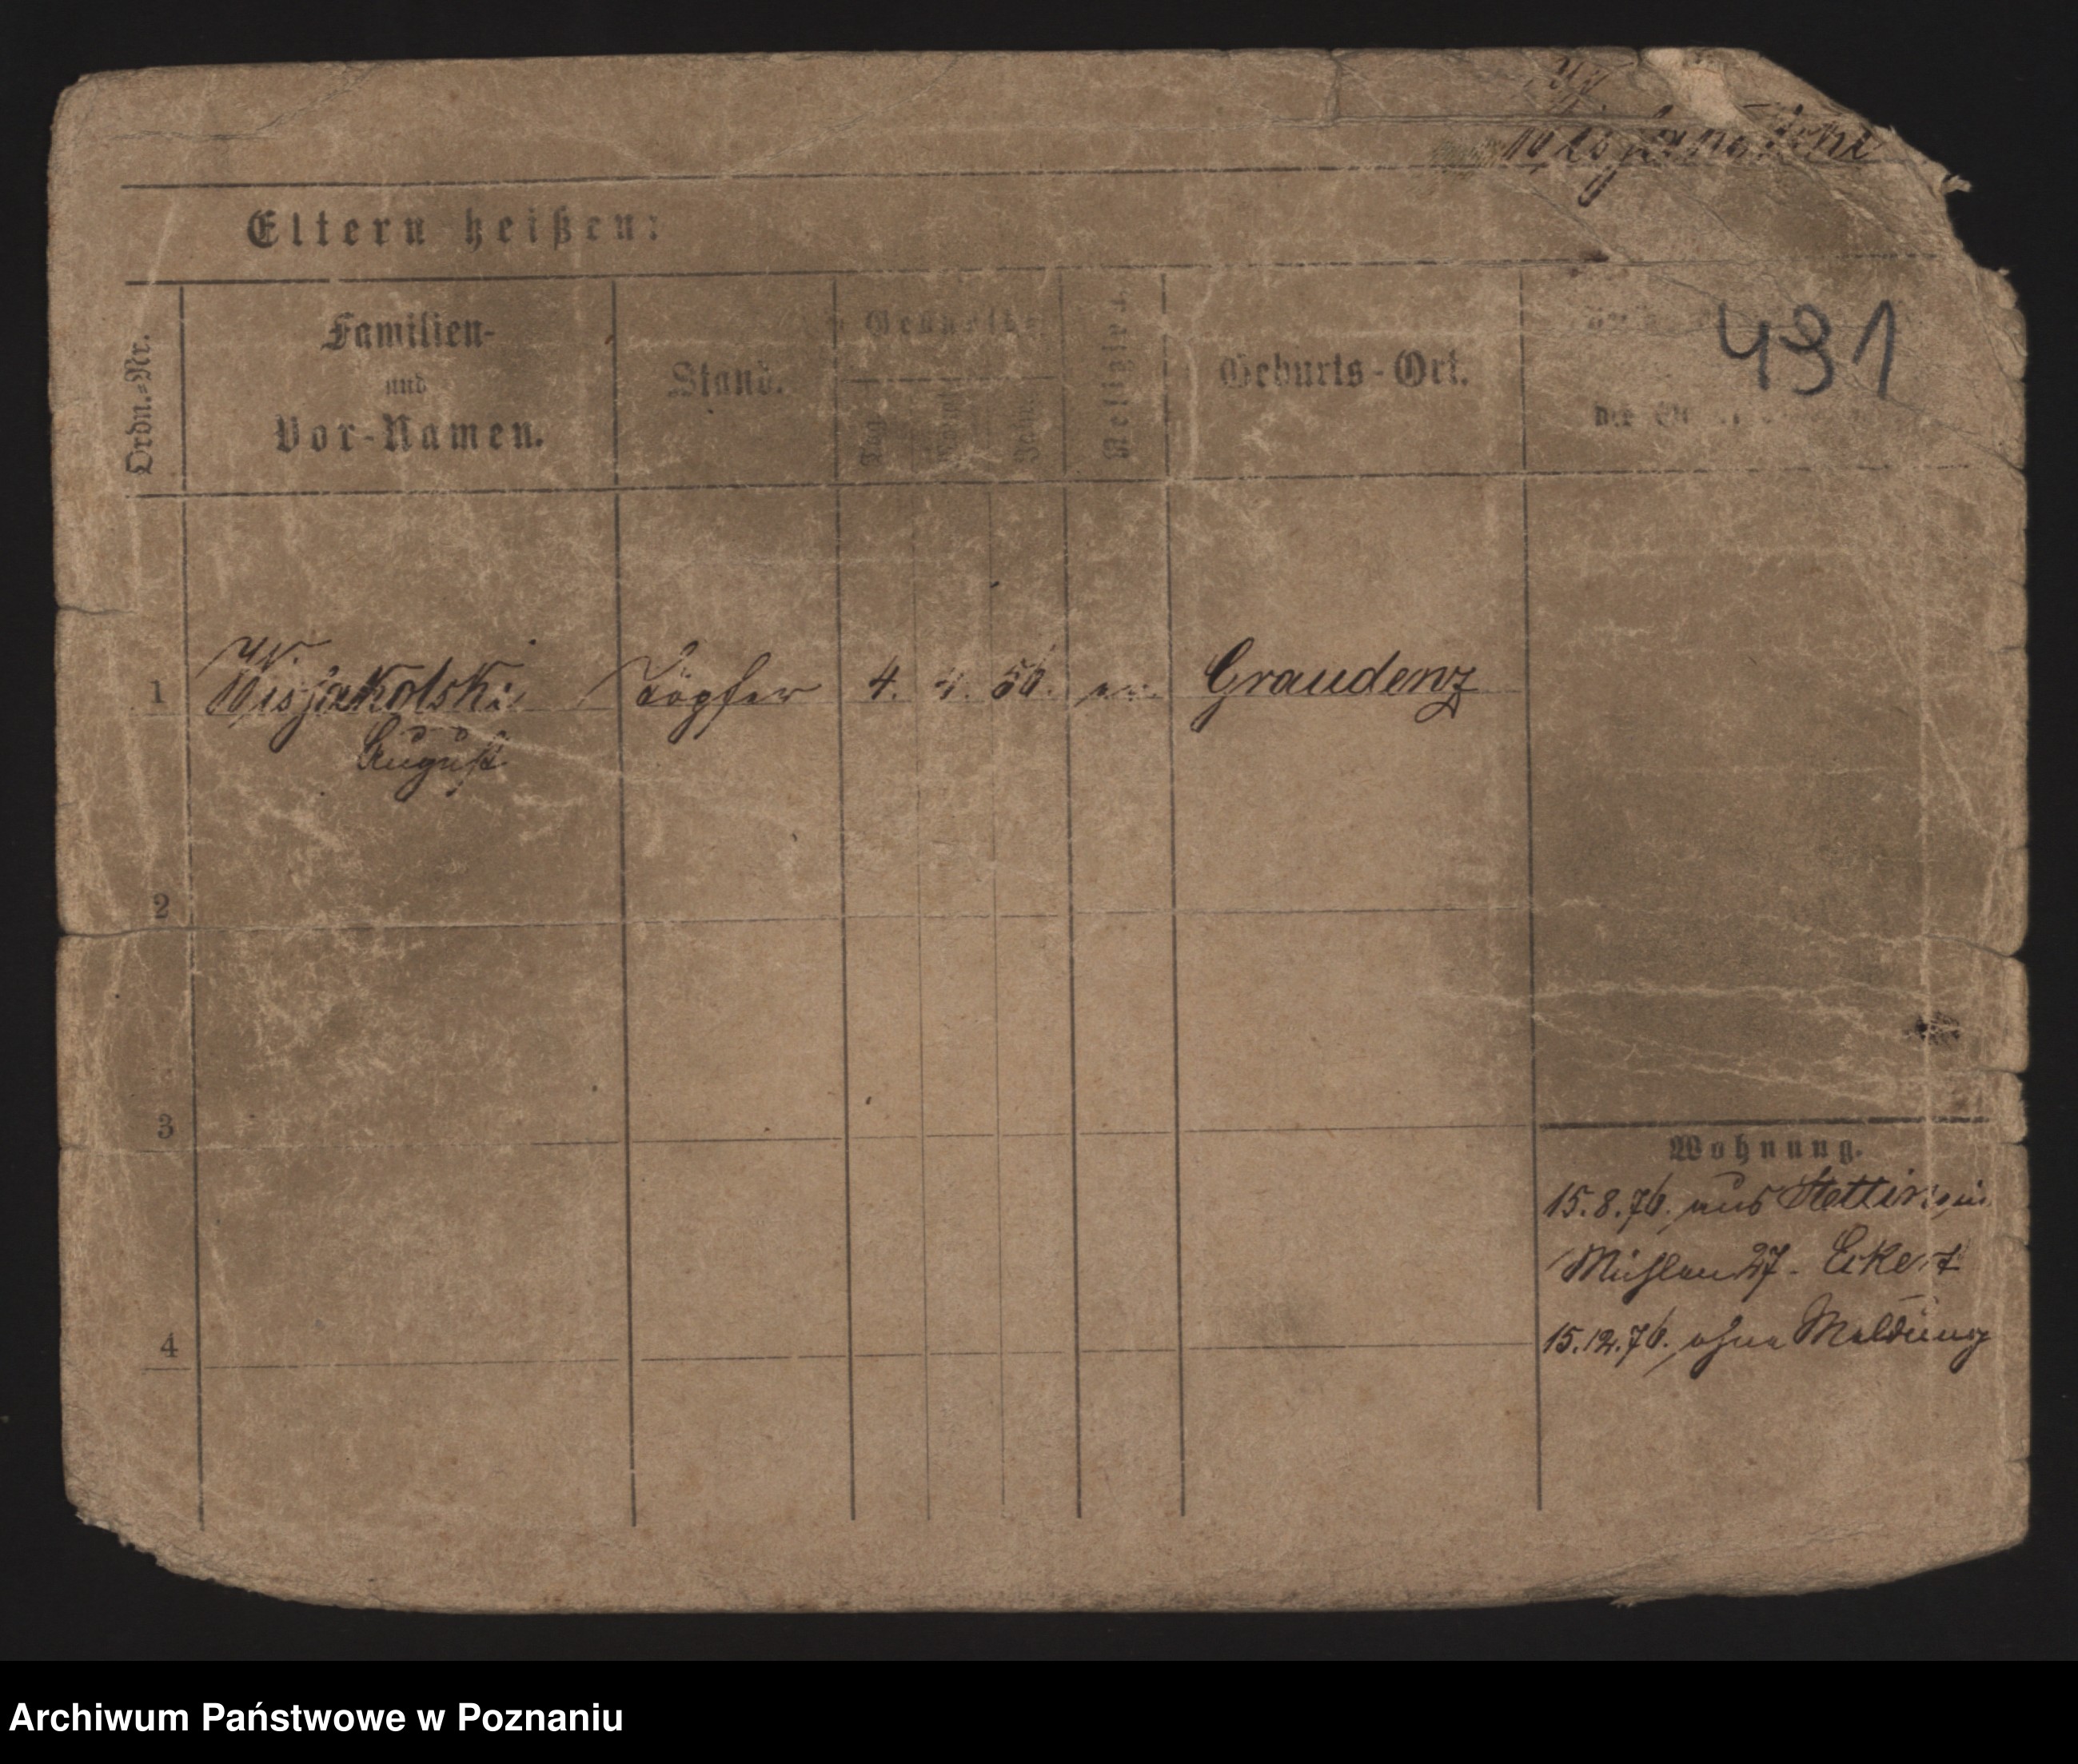 Eltern heißen:
491
Ordn.-Nr.
Familien-
und
Vor-Namen.
Stand.
Geburts-
Tag
Jahr
Religion
Geburts-Ort.
der
1
Wisjakolski
August
Töpfer
4.
56.
Graudenz
2
3
4
Wohnung.
15.8.76. aus Stettin
Mühlen 27. Eckert
15.12.76. ohne Meldung
Archiwum Państwowe w Poznaniu